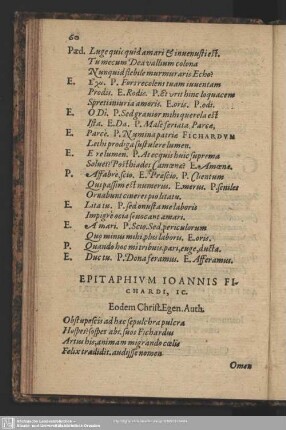 60
Pæd. Luge quicquid amari & inuenusti est.
Tu mecum Dea vallium colona
Nunquid flebile murmuraris Echo?
E. Ἐχω. P. Fors recolens tuam iuuentam
Prodis. E. Rodis. P. Et vrit hinc loquacem
Spretiiniuria amoris. E. oris. P. odi.
E. O Di. P. Sed grauior mihi querela est
Ista. E. Da. P. Malè feriata Parca,
E. Parcè. P. Numina patriæ FICHARDVM
Lethi prodiga sustulere lumen.
E. E
P. Affabrè scio. E. Præscio. P. Clientum
Qui passim est numerus. E. merus. P. seniles
Ornabunt cineres pio litatu.
E. Lita tu. P. sed inusta me laboris
Impigrè ocia seuocant amari.
E. Amari. P. Scio. Sed periculorum
Quò minus mihi, plus laboris. E. oris.
P. Quando hoc mi tribuis, pari, euge, ducta.
E. Duc tu. P. Dona feramus. E. Afferamus.
EPITAPHIVM IOANNIS FI-
CHARDI, IC.
Eodem Christ. Egen. Auth.
Obstupescis ad hæc sepulchra pulcra
Hospes? sospes abi. suos Fichardus
Artus hic, animam migrando cœlis
Felix tradidit. audysse nomen
Omen